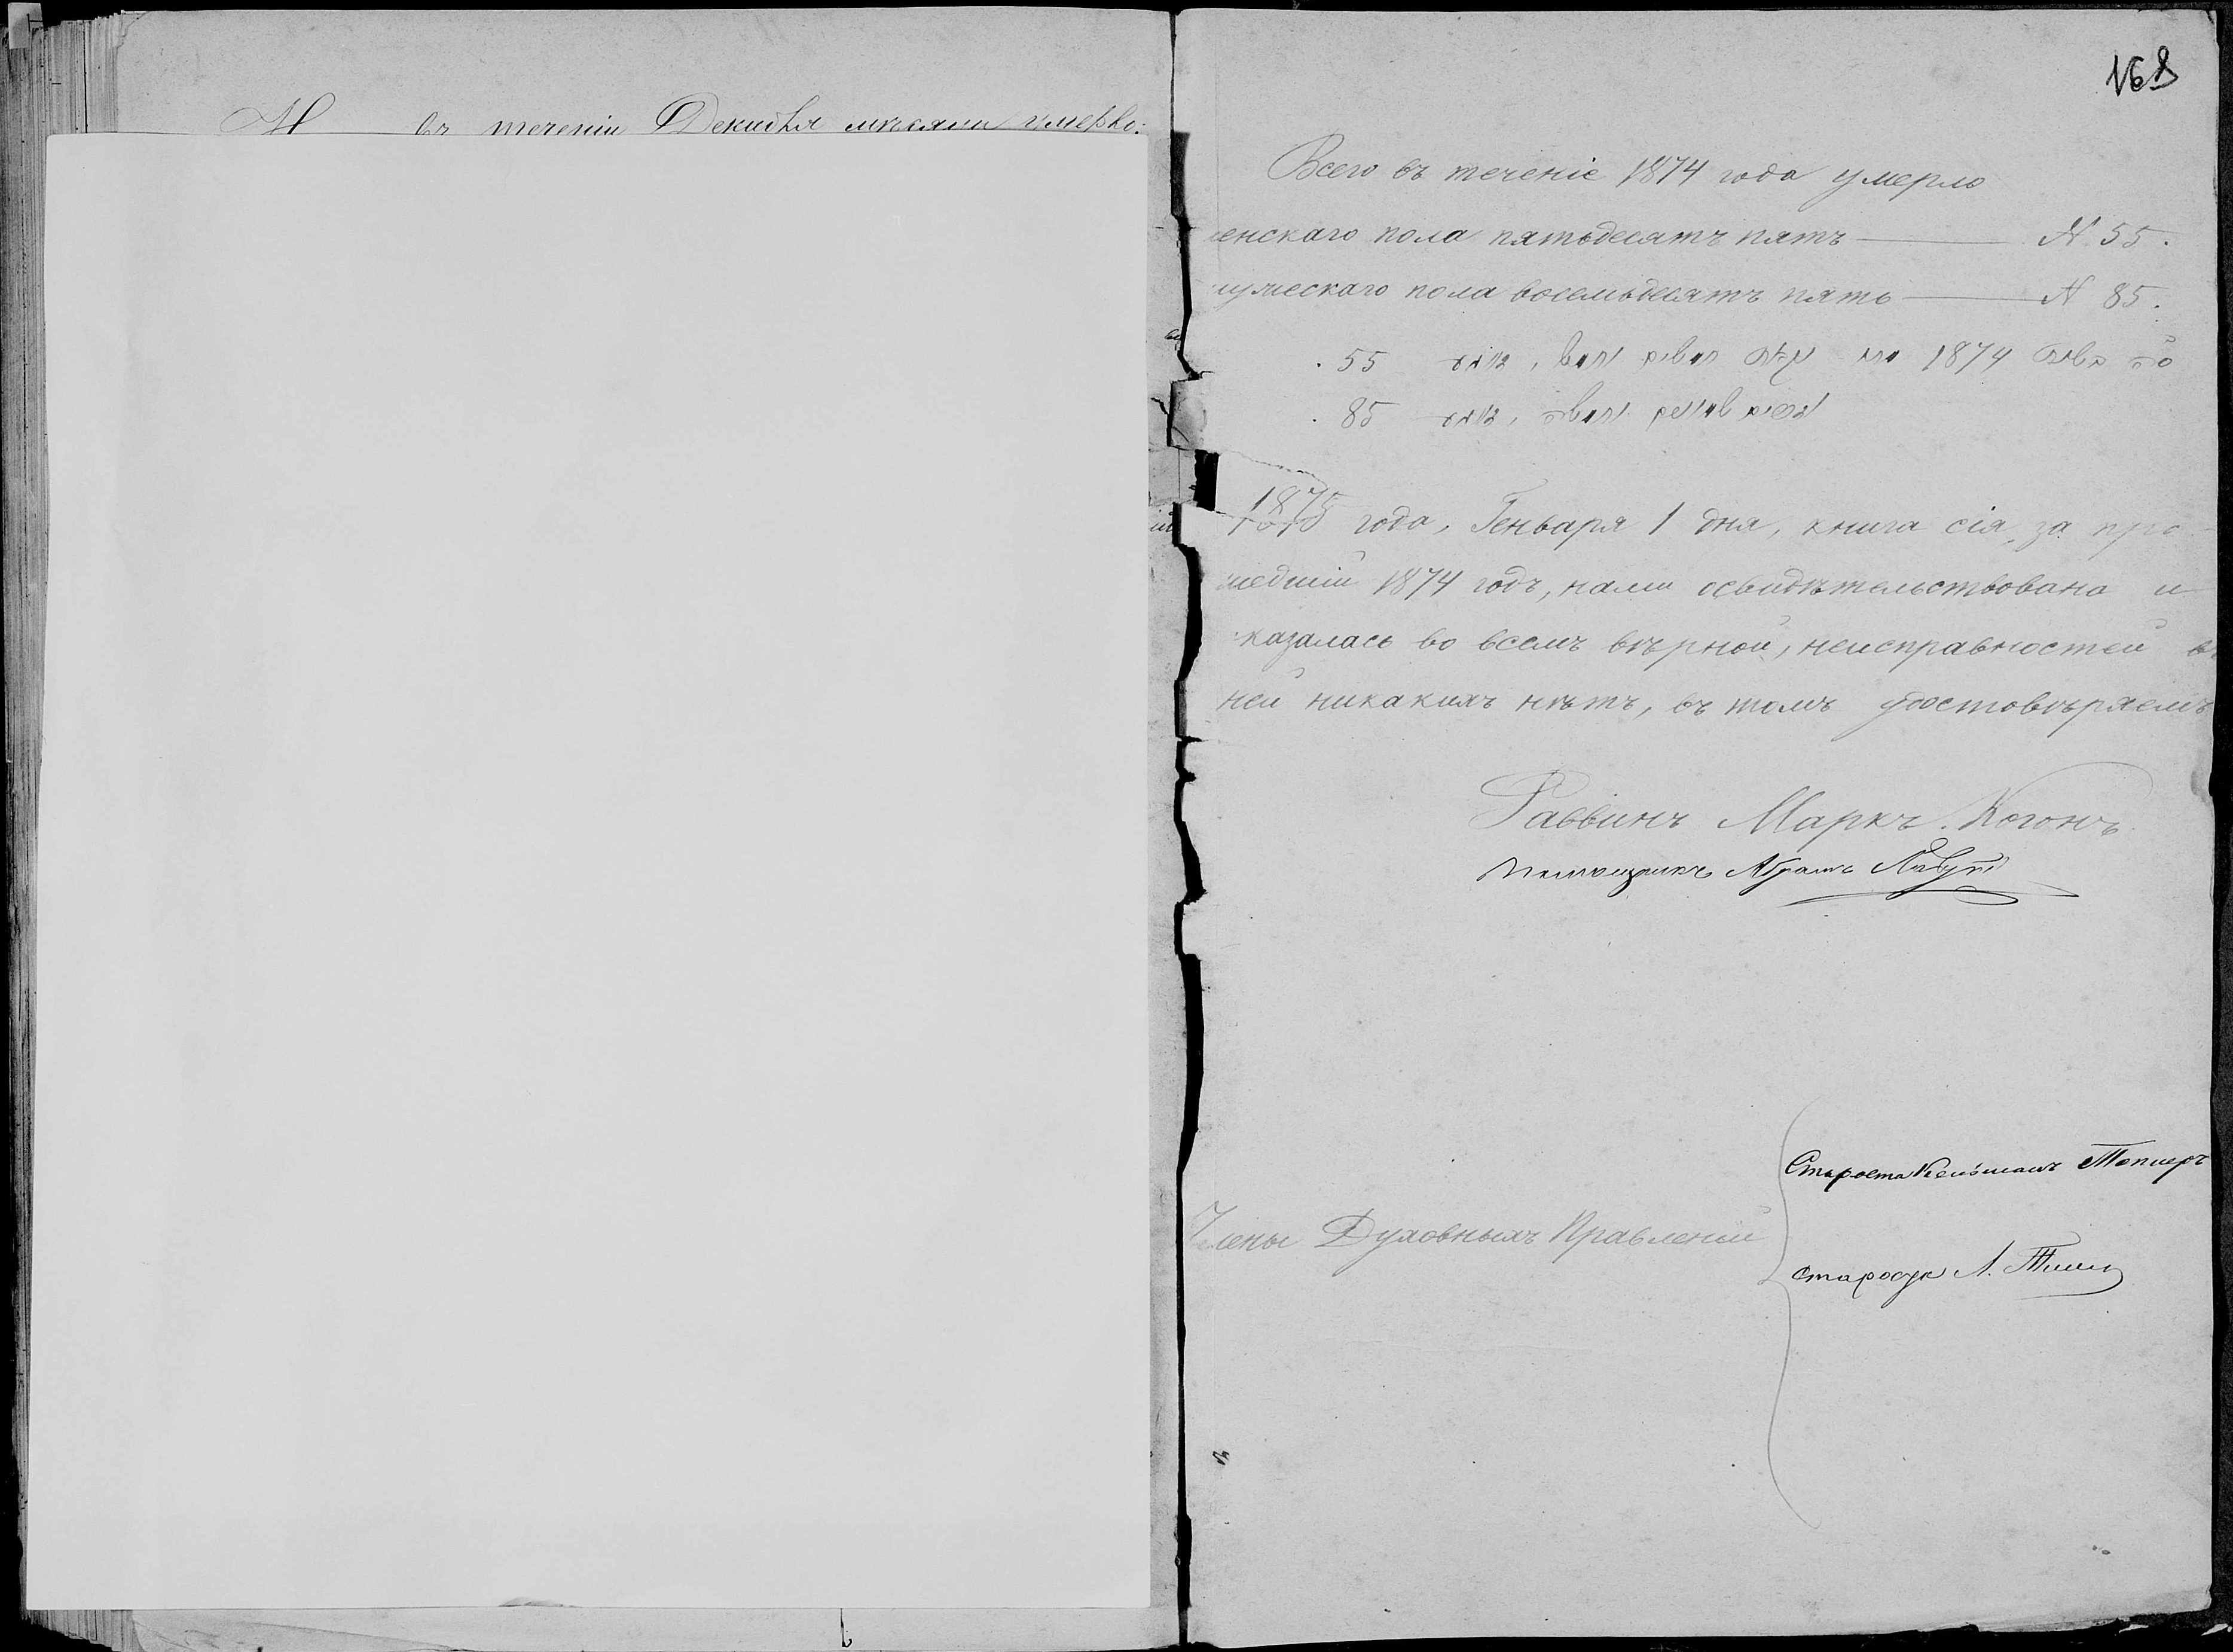 въ теченіи Декабря мѣсяца умерло:
168
Всего въ теченіе 1874 года умерло
енскаго пола пятьдесятъ пять N 55.
мужескаго пола восемьдесятъ пять N 85.
55 1874
85
1875 года, Генваря 1 дня, книга сія, за про
шедшій 1874 годъ, нами освидѣтельствована и
казалась во всемъ вѣрной, неисправностей въ
ней никакихъ нѣтъ, въ томъ удостовѣряемъ
Раввинъ Маркъ Когонъ
Помощникъ Абрамъ
Староста Кельманъ Теплеръ
Члены Духовныхъ Правленій
староста Л.